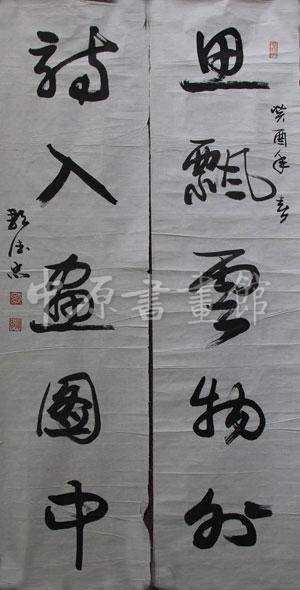 思飄雲物外
癸酉年春
詩入畫圖中
中原書畫館